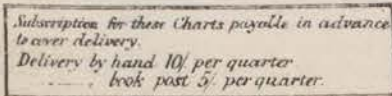 Subscription for these Charts payable in advance
to cover delivery.
Delivery by hand 10/ per quarter
........ , book post 5/. per quarter.